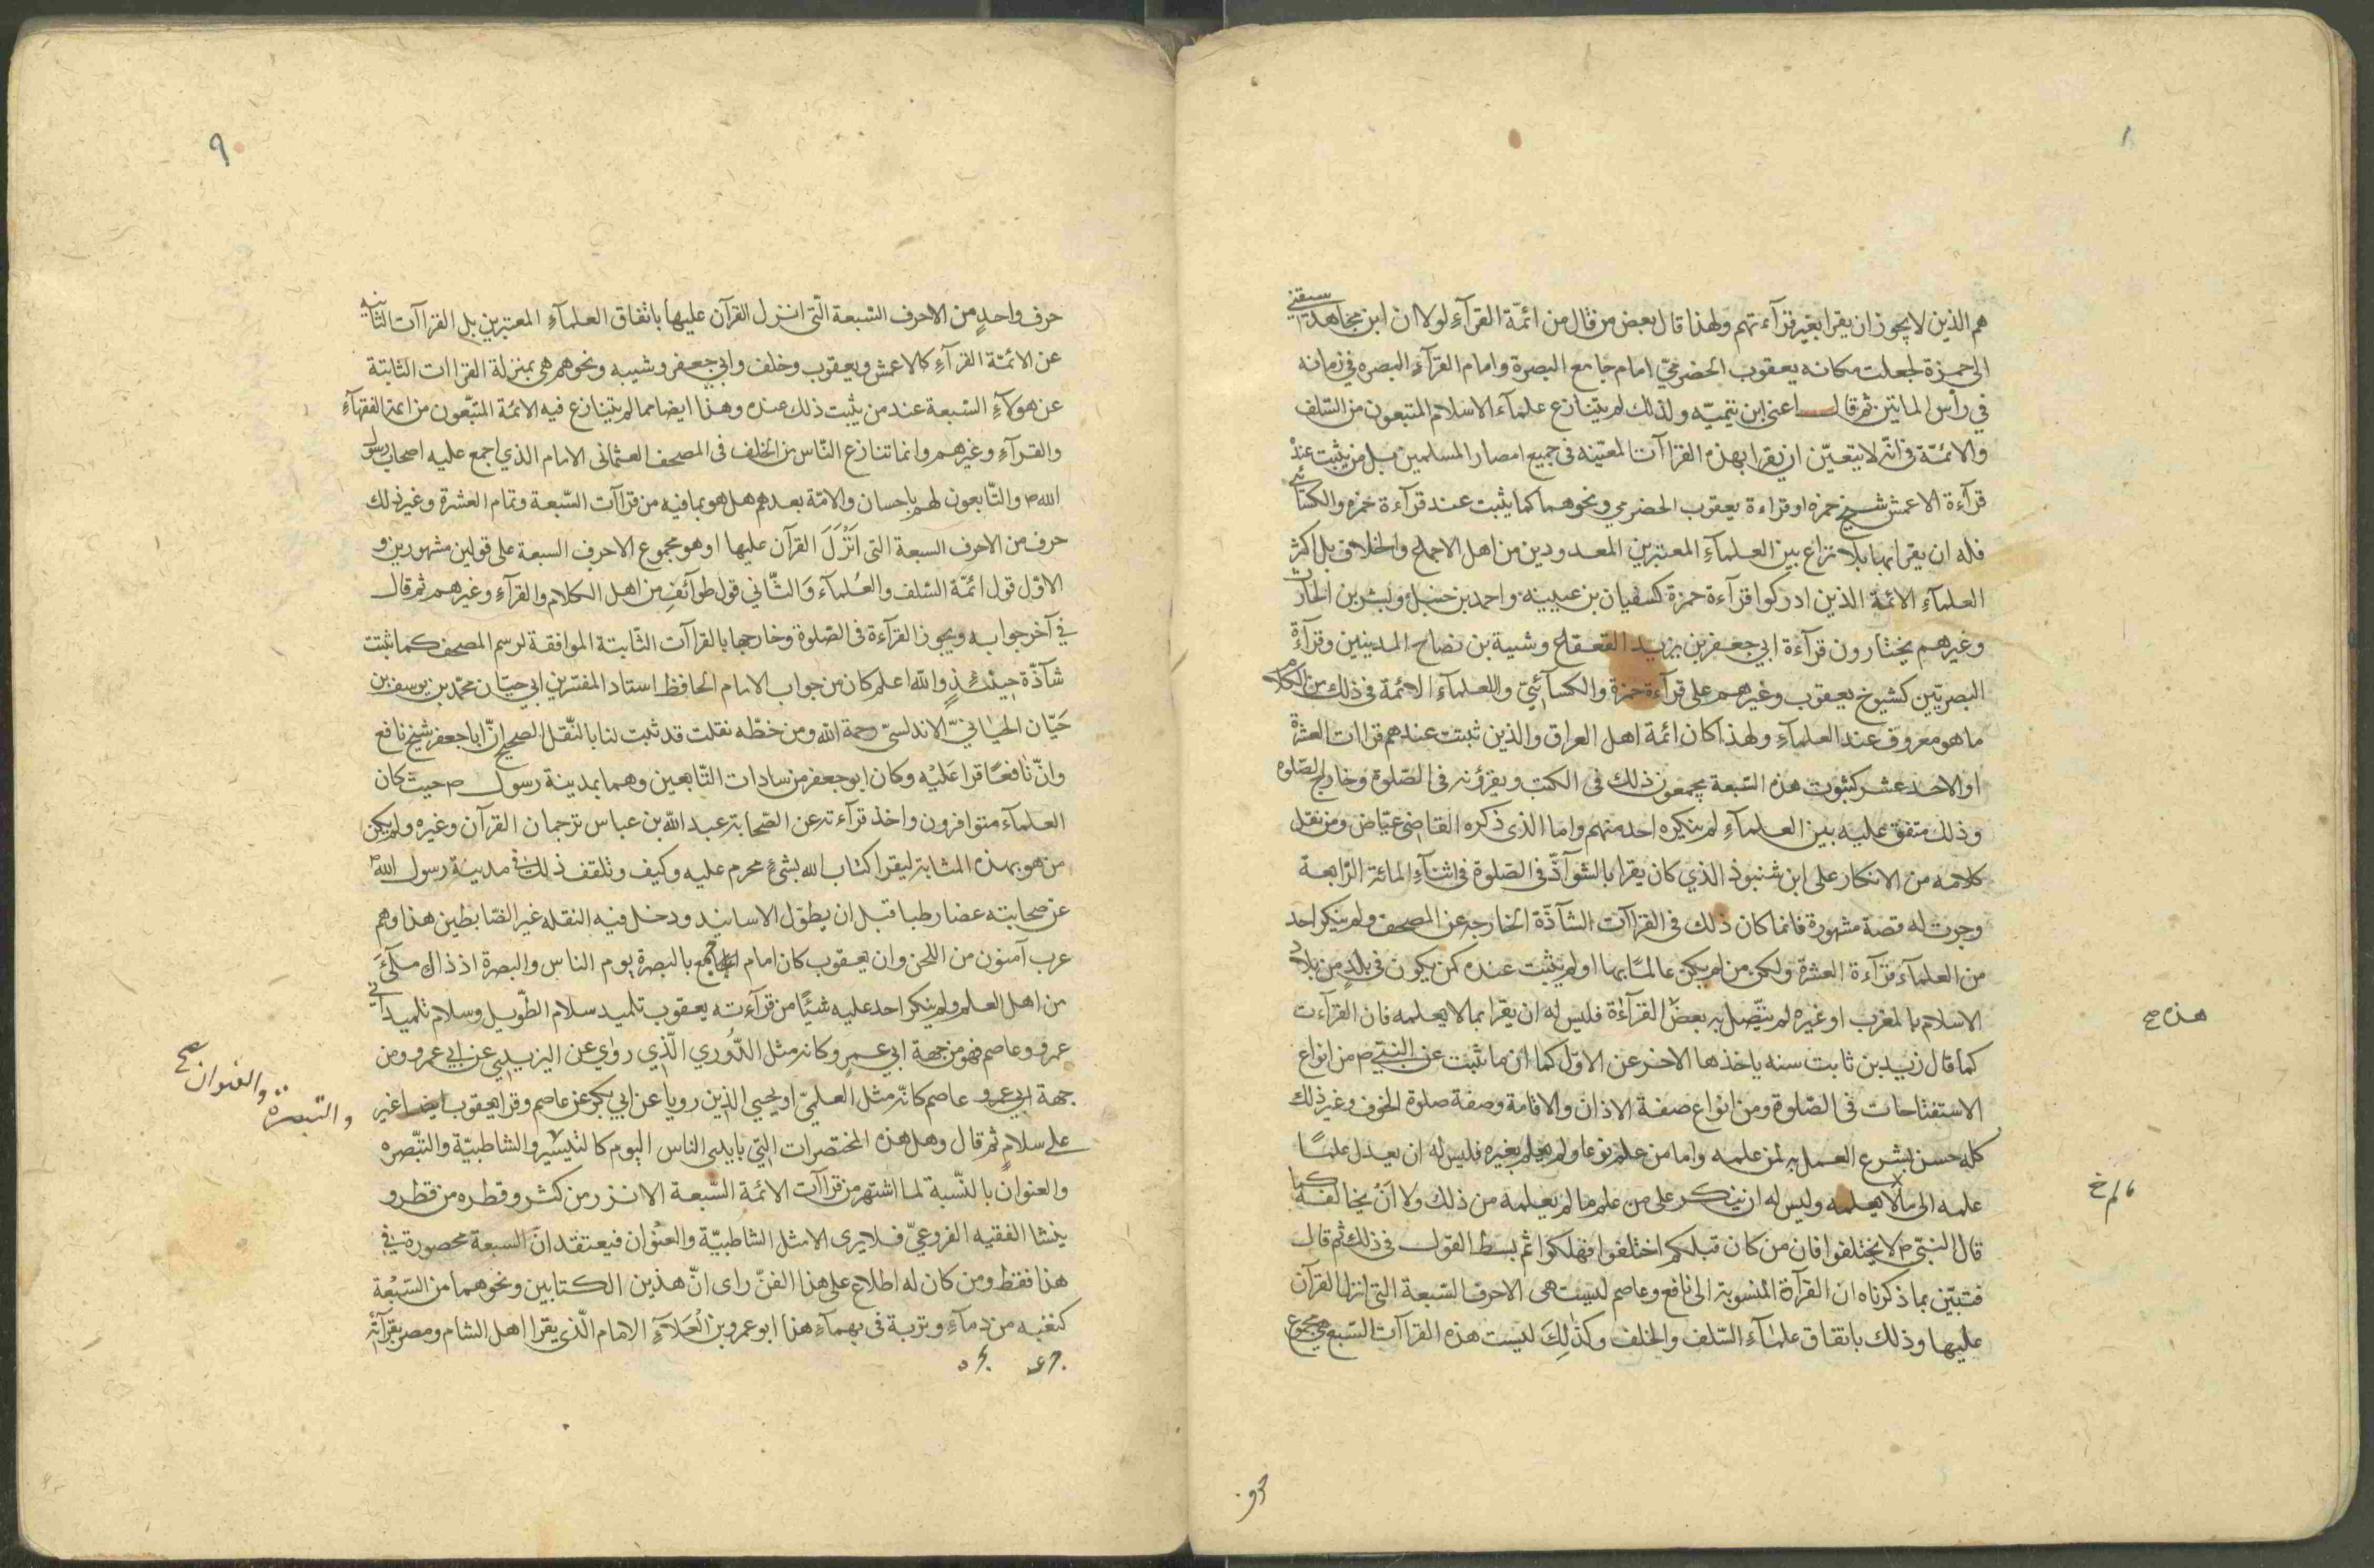 هم الذين لا يجوز ان يقرا بغير قرآءتهم ولهذا قال بعض من قال من ائمّة القرآء لولا ان ابن مجاهد سبقني
الى حمزة لجعلت مكانه يعقوب الحضرميّ امام جامع البصرة وامام القرآء البصره في زمانه
في رأس المايتين ثم قال اعنى ابن تيميّه ولذلك لم يتنازع علمآء الاسلام المتبعون من السّلف
والائمّة فى انّه لا يتعيّن ان يقرا بهذه القراآت المعيّنه فى جميع امصار المسلمين بل من يثبت عنده
قرآءة الاعمش شيخ حمزه او قراءة يعقوب الحضرمي ونحوهما كما يثبت عند قرآءة حمزه والكسائي
فله ان يقرا بها بلا نزاع بين العلمآء المعتبرين المعدودين من اهل الاجماع والخلاف بل اكثر
العلمآء الائمة الذين ادركوا قرآءة حمزة كسفيان بن عيينه واحمد بن حنبل وبشر بن الحارث
وغيرهم يختارون قرآءة ابي جعفر بن يزيد القعقاع وشيبة بن نصاح المدينين وقرآءة
البصريّين كشيوخ يعقوب وغيرهم على قرآءة حمزة والكسآئيّ وللعلمآء الائمة فى ذلك من الكلام
ما هو معروف عند العلمآء ولهذا كان ائمة اهل العراق والذين ثبتت عندهم قراات العشرة
او الاحد عشر كثبوت هذه السّبعة يجمعون ذلك فى الكتب ويقرؤنه فى الصّلوة وخارج الصّلوه
وذلك متفق عليه بين العلمآء لم ينكره احد منهم واما الذى ذكره القاضى عيّاض ومن نقل
كلامه من الانكار على ابن شنبوذ الذي كان يقرا بالشوآذّ فى الصّلوة فى اثنآء المائة الرّابعة
وجرت له قصة مشهورة فانما كان ذلك فى القراآت الشآذّة الخارجه عن المصحف ولم ينكر احد
من العلمآء قرآءة العشرة ولكن من لم يكن عالمًا بها او لم يثبت عنده كمن يكون فى بلد من بلاد
الاسلام بالمغرب او غيره لم يتّصل به بعض القرآءة فليس له ان يقرا بما لا يعلمه فان القرآءت
هذه صح
كما قال زيد بن ثابت سنه ياخذها الاخر عن الاوّل كما ان ما ثبت عن النبيّ ص من انواع
الاستفتاحات فى الصّلوة ومن انواع صفة الاذان والاقامة وصفة صلوة الخوف وغير ذلك
كله حسن يشرع العمل به لمن علمه واما من علم نوعا ولم يعلم بغيره فليس له ان يعدل علمًا
علمه الى مالا يعلمه وليس له ان ينكر على من علم ما لم يعلمه من ذلك ولا انْ يخالفه كما
لم خ
قال النبيّ ص لا يختلفوا فان من كان قبلكم اختلفوا فهلكوا ثم بسط القول فى ذلك ثم قال
فتبيّن بما ذكرناه ان القرآة المنسوبة الى نافع وعاصم ليست هى الاحرف السّبعة التى انزل القرآن
عليها وذلك باتفاق علمآء السّلف والخلف وكذلِكَ ليست هذه القراآت السّبع هي مجموع
حرف
٩
حرف واحدٍ من الاحرف السّبعة الّتى انزل القرآن عليها باتفاق العلمآء المعتبرين بل القراآت الثابته
عن الائمّة القرآء كالاعمش ويعقوب وخلف وابي جعفر وشيبه ونحوهم هى بمنزلة القراات الثابتة
عن هولآء السّبعة عند من يثبت ذلك عنده وهذا ايضا مما لم يتنازع فيه الائمّة المتبّعون من ائمة الفقهآء
والقرآء وغيرهم وانما تنازع النّاس من الخلف فى المصحف العثمانى الامام الذي اجمع عليه اصحاب رسول
الله ص والتّابعون لهم باحسان والامّة بعدهم هل هو بما فيه من قراآت السّبعة وتمام العشرة وغير ذلك
حرف من الاحرف السبعة التى انزل القرآن عليها او هو مجموع الاحرف السبعة على قولين مشهورين و
الاوّل قول ائمّة السّلف والعُلمآء وَالثّاني قول طوآئف من اهل الكلام والقرآء وغيرهم ثم قال
في آخر جوابه ويجوز القرآءة فى الصّلوة وخارجها بالقراآت الثّابتة الموافقة لرسم المصحف كما ثبتت
شآذّة حينئذٍ والله اعلم كان من جواب الامام الحافظ استاد المفسّرين ابي حيّان محمّد بن يوسف بن
حَيّان الاندلسيّ رحمة الله ومن خطّه نقلت قد ثبت لنا بالنّقل الصحيح انّ ابا جعفر شيخ نافع
وانّ نافعًا قرا عَليْه وكان ابو جعفر من سادات التّابعين وهما بمدينة رسول ص حيث كان
العلمآء متوافرون واخذ قرآءته عن الصّحابة عبد الله بن عباس ترجمان القرآن وغيره ولم يكن
من هو بهذه المثابة ليقرا كتاب الله بشئ محرم عليه وكيف وتلقف ذلك فى مدينة رسول الله ص
عن صحابته غضا رطبا قبل ان يطوّل الاسانيد ودخل فيه النقله غير الضّابطين هذا وهم
عرب آمنون من اللحن وان يعقوب كان امام الجامع بالبصرة يوم الناس والبصرة اذ ذاك ملآءَ
من اهل العلم ولم ينكر احد عليه شيًا من قرآءته يعقوب تلميد سلام الطّويل وسلام تلميد ابي
عمرو وعاصم فهو من جهة ابي عمرٍو كانه مثل الدُّوري الّذي روي عن اليزيديي عن ابي عمرو ومن
جهة ابي عمرو عاصم كانّه مثل العلميّ او يحيي الذين رويا عن ابي بكر عن عاصم وقرا يعقوب ايضا غير
والتبصرة والعنوان صح
على سلامٍ ثم قال وهل هذه المختصرات التّي بايدى الناس اليوم كالتيسير والشاطبيّة والتّبصره
والعنوان بالنّسبة لما اشتهر من قراآت الائمة السّبعة الا نزر من كثر وقطره من قطر و
ينشا الفقيه الفروعيّ فلا يرى الا مثل الشاطبيّة والعنوان فيعتقد انّ السبعة محصورة في
هذا فقط ومن كان له اطلاع على هذا الفنّ راى انّ هذين الكتابين ونحوهما من السّبْعة
كنغبه من دمآء وتربة فى بهمآء هذا ابو عمرو بن العَلآء الامام الّذى يقرا اهل الشام ومصر بقرآته